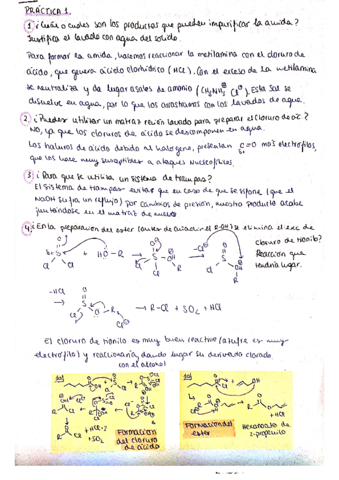 PRÁCTICA 1.
1. ¿Cuál o cuáles son los productos que pueden impurificar la amida?
Justifica el lavado con agua del sólido.
Para formar la amida, hacemos reaccionar la metilamina con el cloruro de
ácido, que genera ácido clorhídrico (HCl). Con el exceso de la metilamina
se neutraliza y da lugar a sales de amonio (CH3NH3⊕ Cl⊖). Esta sal se
disuelve en agua, por lo que la arrastramos con los lavados de agua.
2. ¿Puedes utilizar un matraz recién lavado para preparar el cloruro de ác?
No, ya que los cloruros de ácido se descomponen en agua.
Los haluros de ácido debido al halógeno, presentan C=O más electrófilos,
que los hace muy susceptibles a ataques nucleófilos.
3. ¿Para qué se utiliza un sistema de trampas?
El sistema de trampas evitar que en caso de que se sifone (que el
NaOH sufra un reflujo) por cambios de presión, nuestro producto acabe
juntándose en el matraz de nuevo
4. ¿En la preparación del ester (antes de añadir el R-OH) se elimina el exc de
cloruro de tionilo?
Reacción que
tendría lugar.
-HCl
→ R-Cl + SO2 + HCl
El cloruro de tionilo es muy buen reactivo (azufre es muy
electrófilo) y reaccionaría, dando lugar su derivado clorado
con el alcohol
+ HCl
+ SO2
Formación
del cloruro
de ácido
+ HCl
Formación del
ester
Hexanoato de
2-propenilo